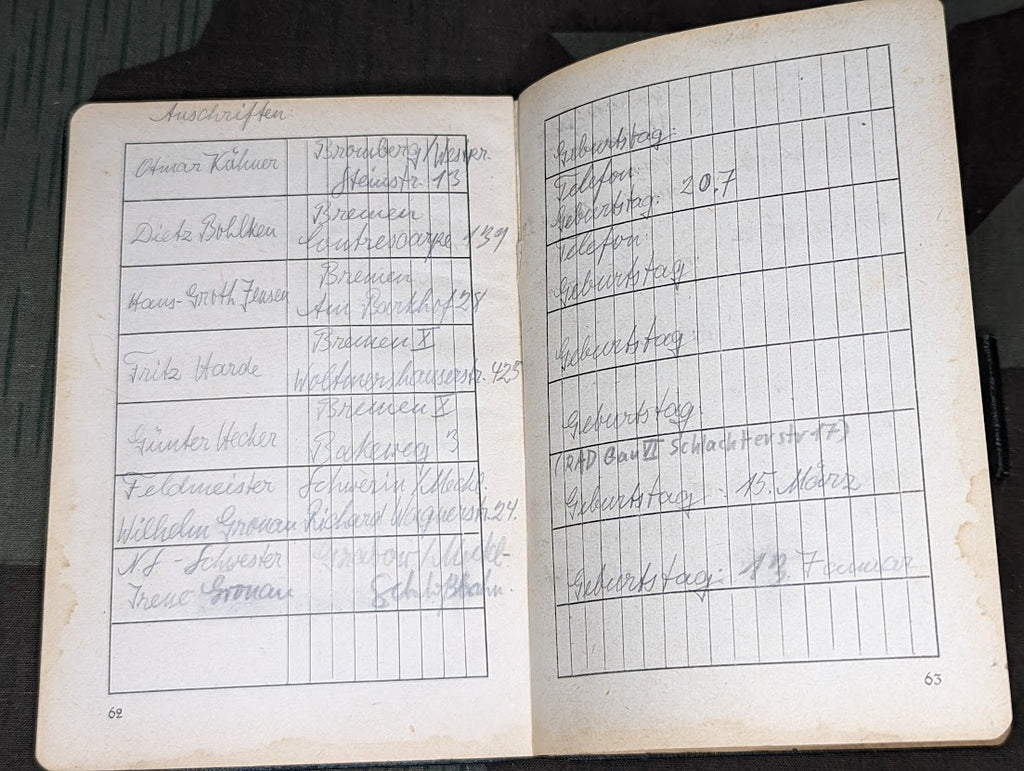 Anschriften:
Otmar Kähner
Bromberg/Wester.
Steinstr. 13
Dietz Bohlken
Bremen
Contrescarpe 139
Hans-Groth Jensen
Bremen
Am Barkhof 28
Fritz Harde
Bremen X
Woltmershauserstr. 425
Günter Hecher
Bremen X
Bakeweg 3
Feldmeister Schwerin/Meckl.
Wilhelm Gronau Richard Wagnerstr. 24.
N.S-Schwester Grabow/Meckl-
Irene Gronau
62
Geburtstag:
Telefon:
Geburtstag: 20.7
Telefon:
Geburtstag:
Geburtstag:
Geburtstag:
(RAD Gau VI Schlachterstr 17)
Geburtstag: 15. März
Geburtstag: 13. Januar
63